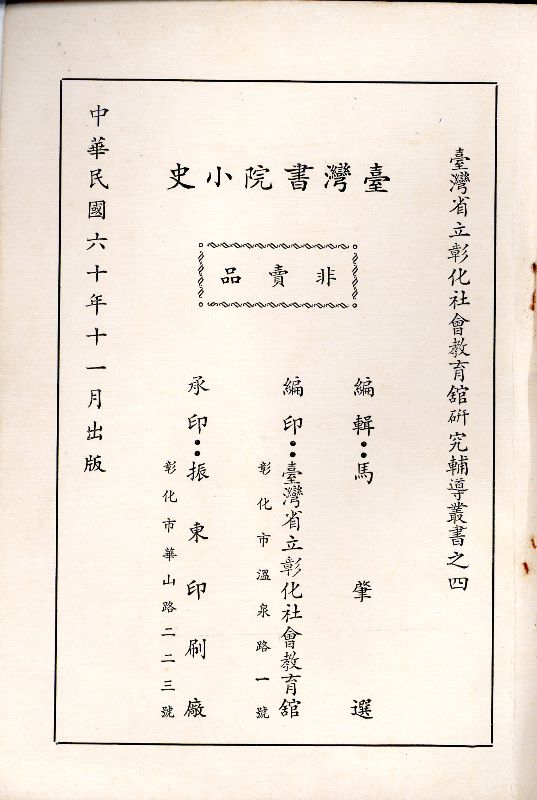 臺灣省立彰化社會教育舘研究輔導叢書之四
臺灣書院小史
非賣品
編輯：馬肇選
編印：臺灣省立彰化社會教育舘
彰化市溫泉路一號
承印：振東印刷廠
彰化市華山路二二三號
中華民國六十年十一月出版